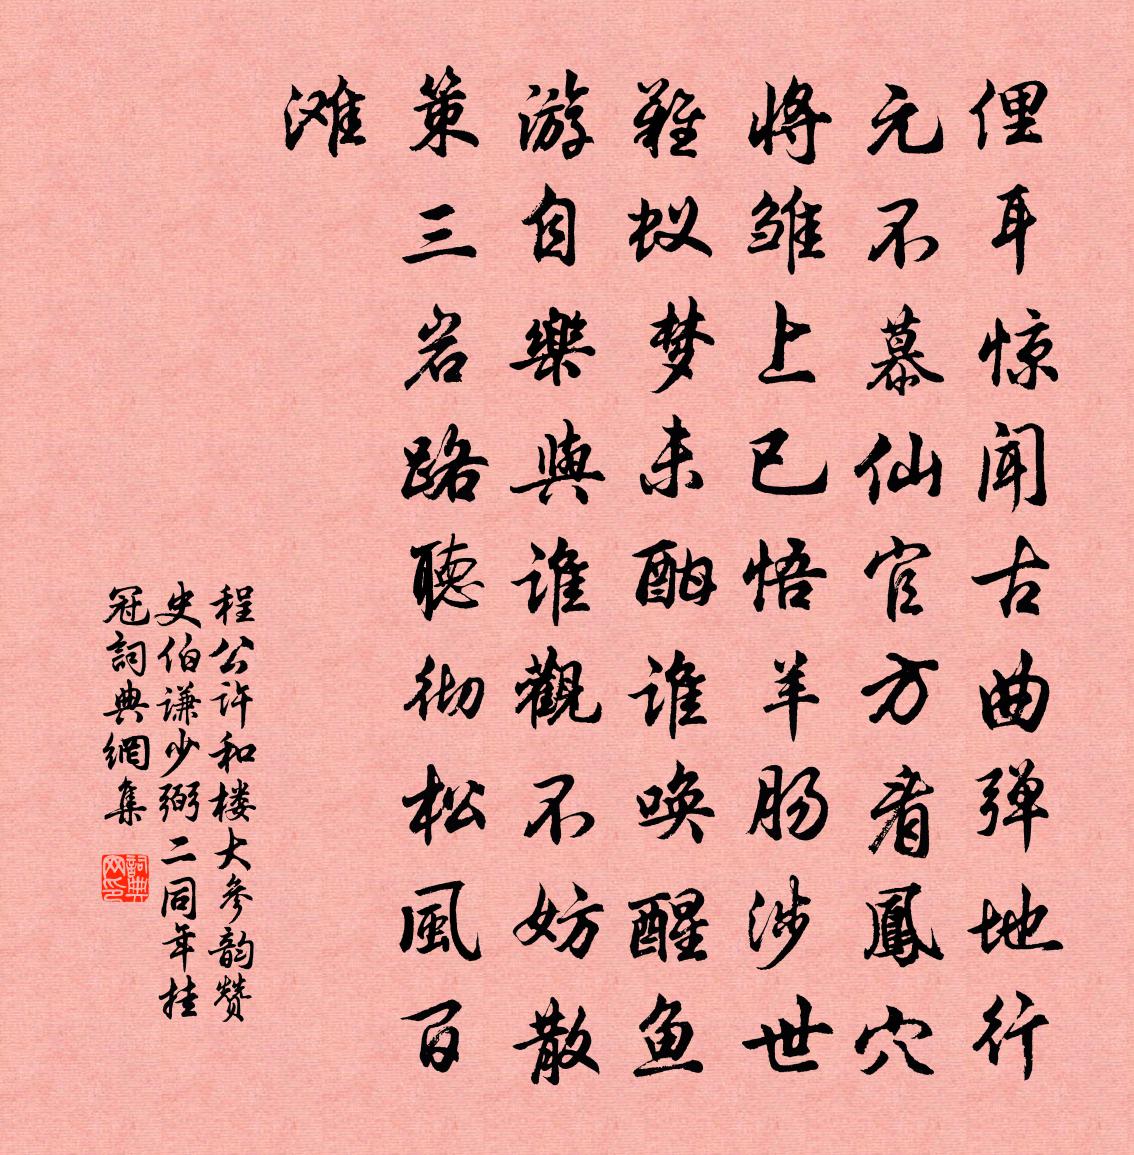 俚耳惊闻古曲弹地行
元不慕仙官方看鳳穴
将雏上已悟羊肠涉世
难蚁梦未酣谁唤醒鱼
游自樂與谁觀不妨散
策三岩路聴彻松風百
滩
程公许和楼大参韵赞
史伯谦少弼二同年挂
冠詞典網集
詞典
网印